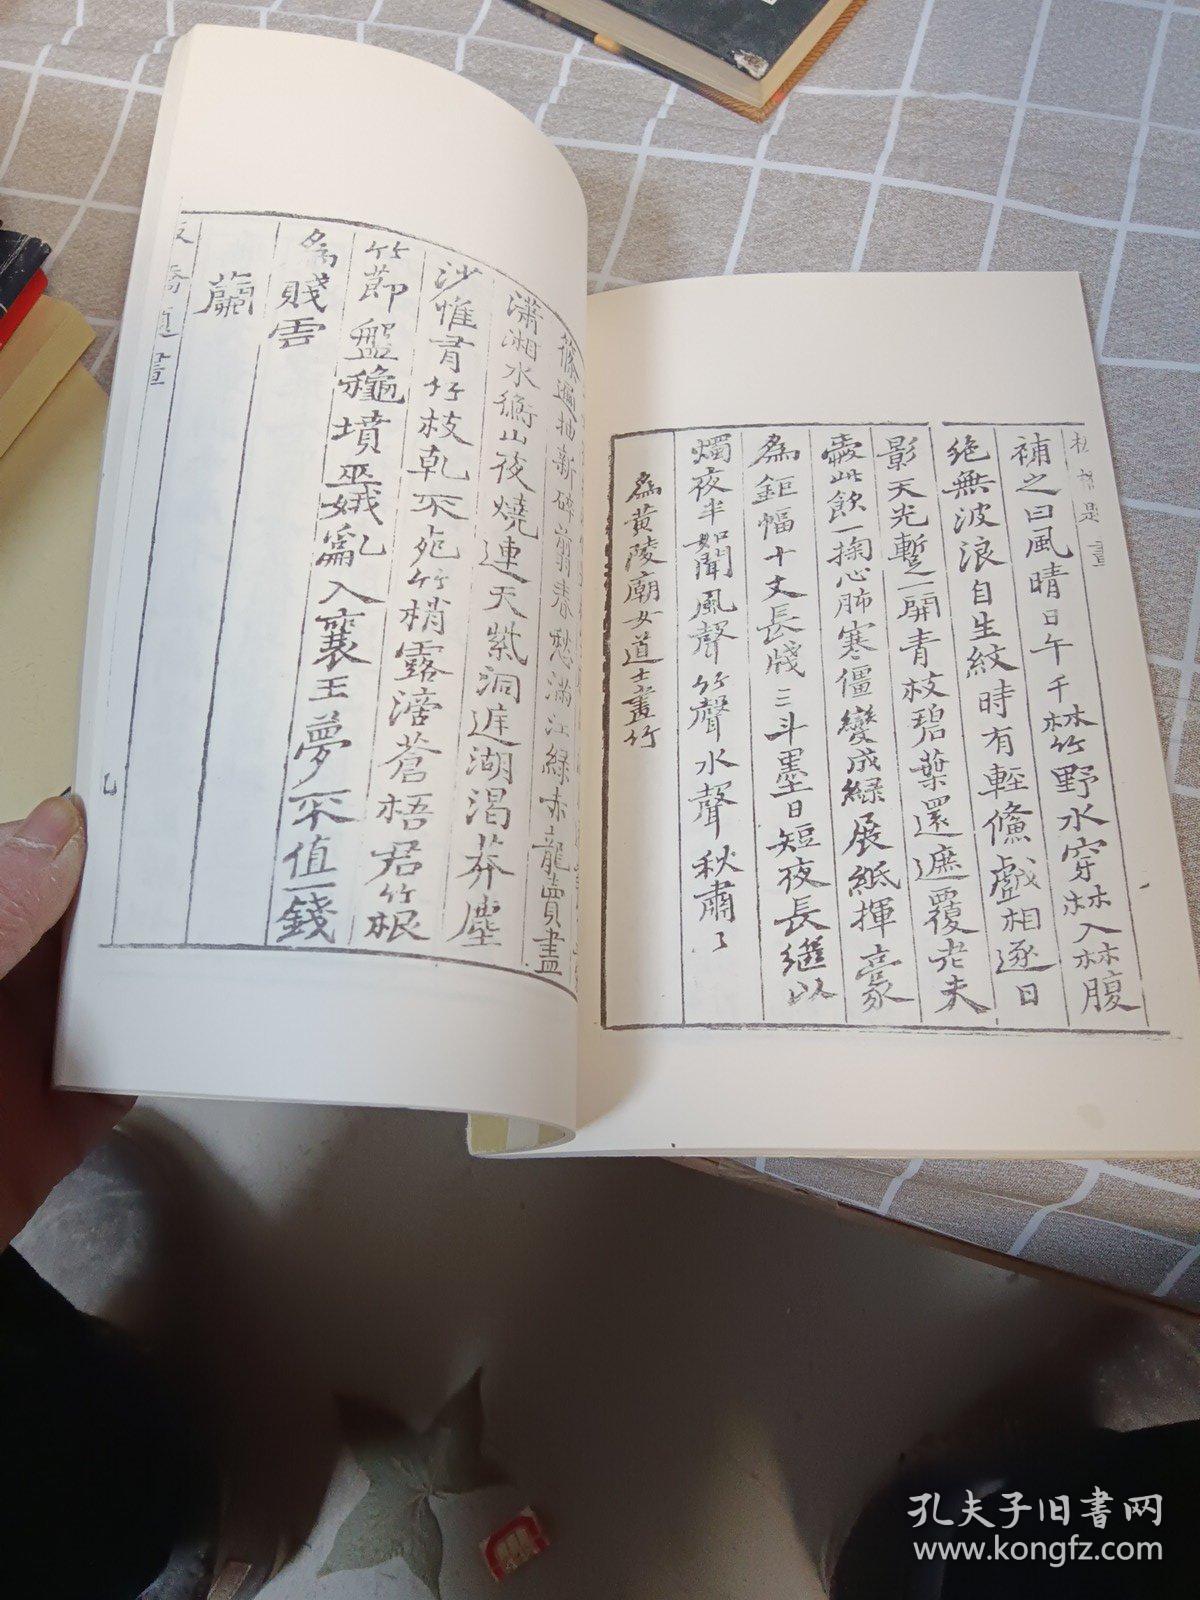 補之曰風晴日午千林竹野水穿林入林腹
絶無波浪自生紋時有輕鯈戲相逐日
影天光暫一開青枝碧葉還遮覆老夫
愛此飲一掬心肺寒僵變成綠展紙揮毫
為鉅幅十丈長牋三斗墨日短夜長繼以
燭夜半如聞風聲竹聲水聲秋肅肅
為黄陵廟女道士畫竹
瀟湘水衡山夜燒連天紫洞庭湖渴莽塵
沙惟有竹枝乾不死竹梢露滴蒼梧君竹根
竹節盤龜墳巫娥亂入襄王夢不值一錢
為賤雲
蘭
孔夫子旧书网
www.kongfz.com